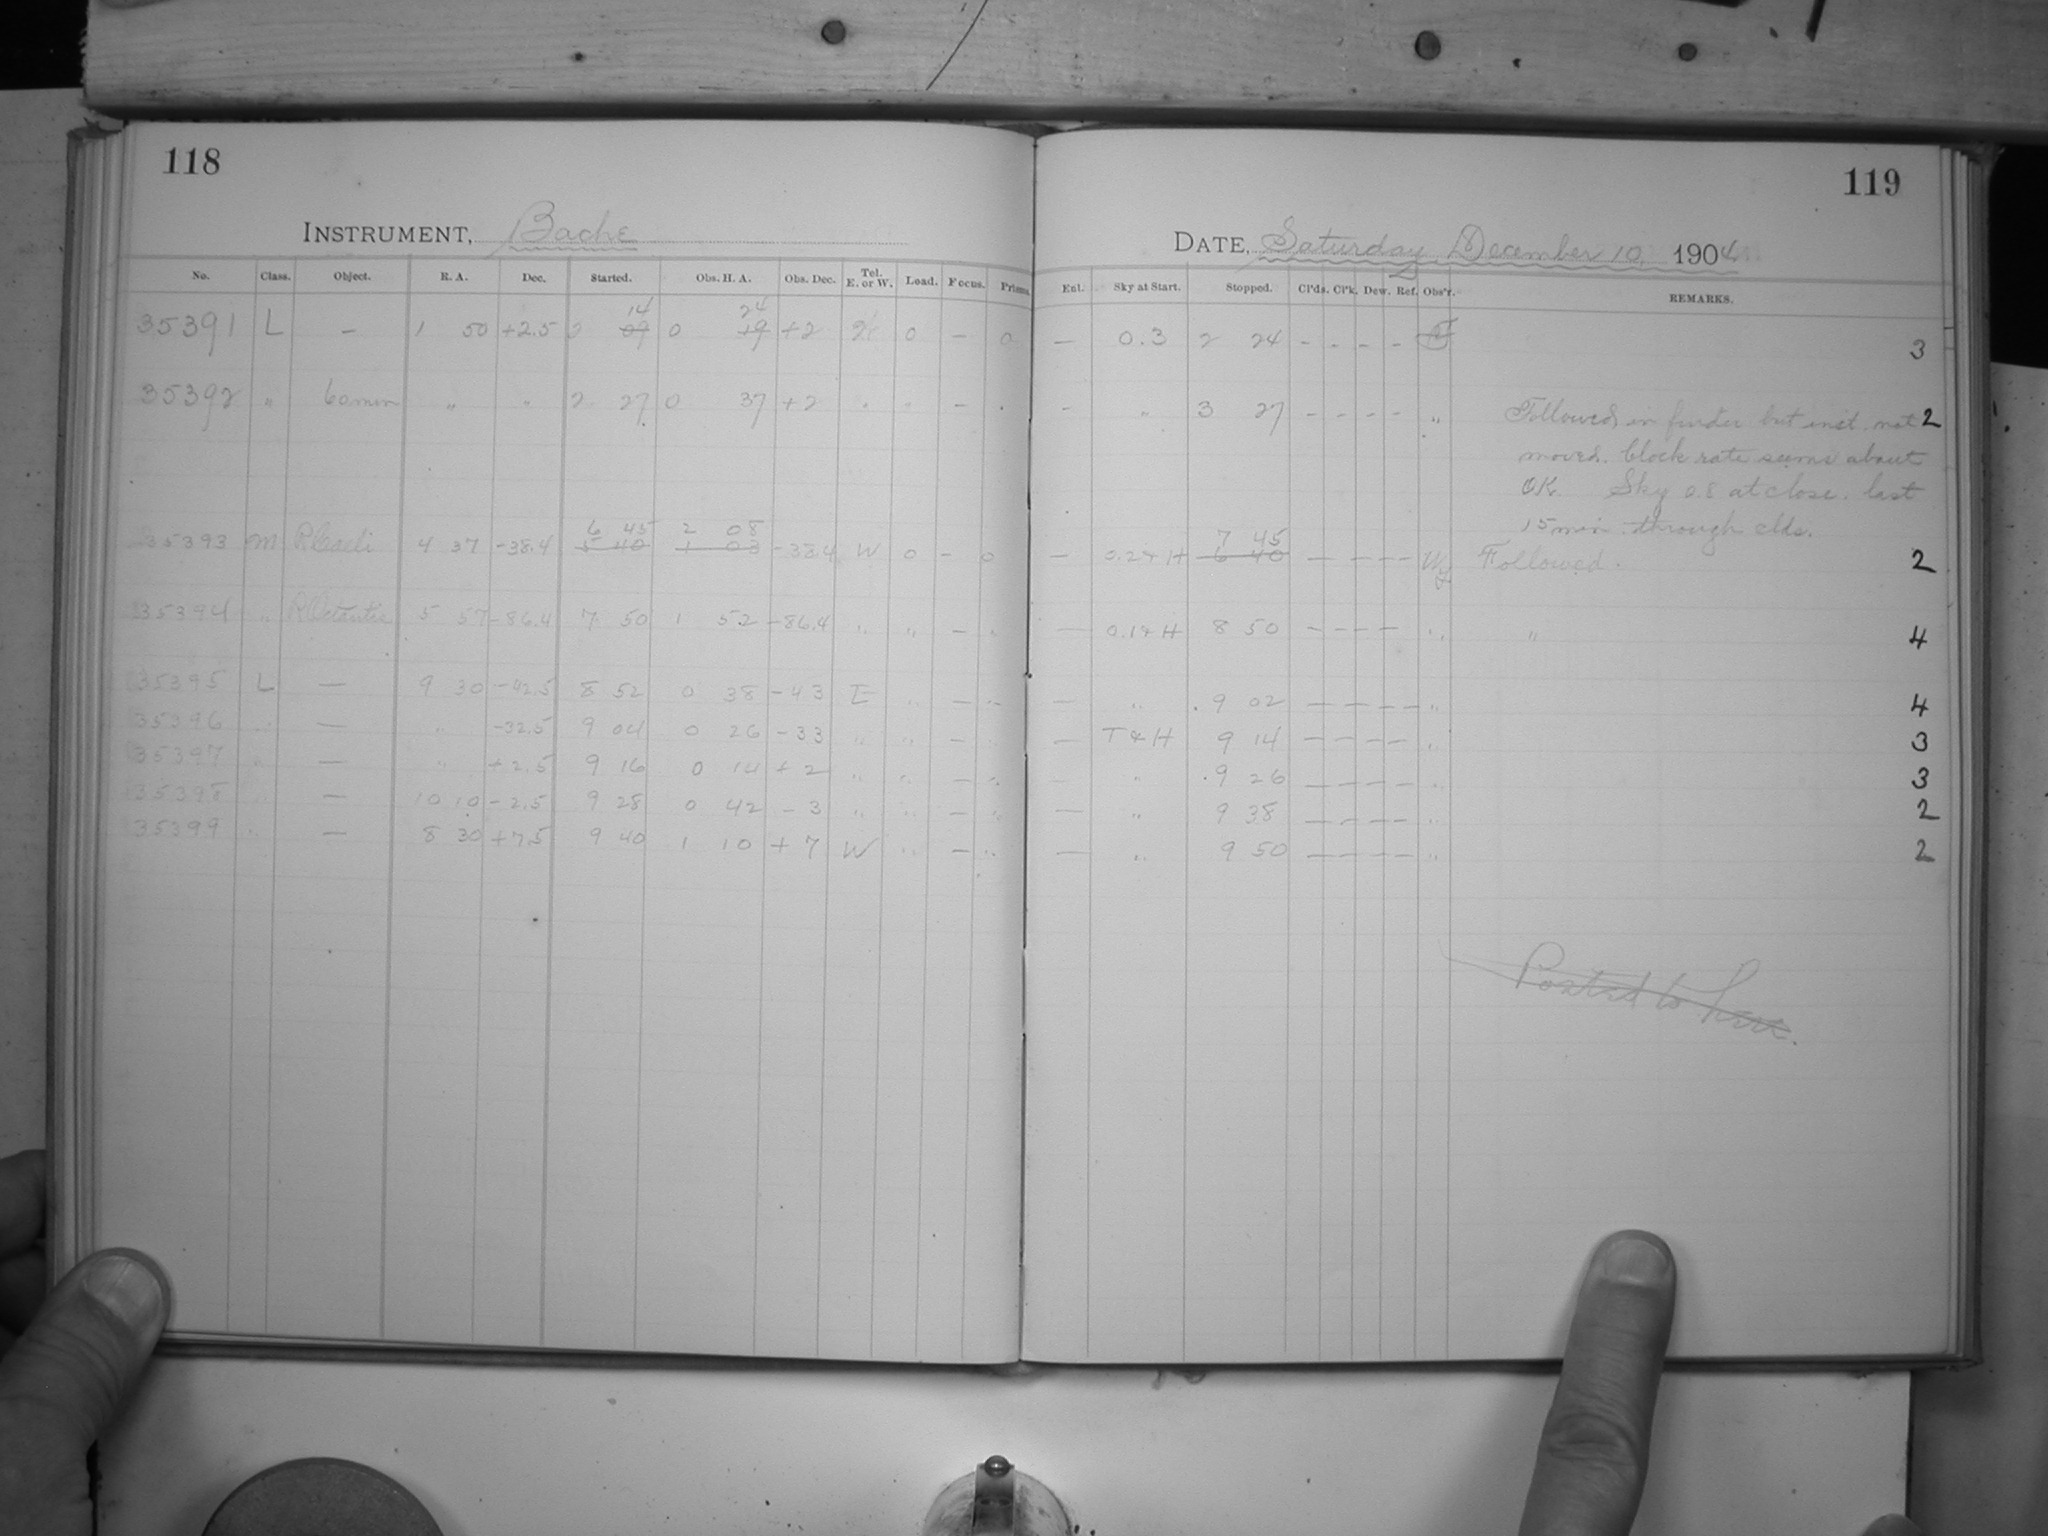 118
119
INSTRUMENT, Bache
DATE, Saturday December 10, 1904
No. Class. Object. R. A. Dec. Started. Obs. H. A. Obs. Dec. Tel. E. or W. Load. Focus. Prisms.
Ent. Sky at Start. Stopped. Cl'ds. Cl'k. Dew. Ref. Obs'r. REMARKS.
14 24
35391 L — 1 50 +2.5 2 09 0 19 +2 0 — 0 — 0.3 2 24 - - - - 3
35392 " 60 min " " 2 27 0 37 +2 " - — " - " 3 27 - - - - " Followed in finder but inst. not 2
moved. Clock rate seems about
OK. Sky 0.8 at close. last
15 min. through clds.
6 45 2 08 7 45
35393 M R Caeli 4 37 -38.4 5 40 1 03 -38.4 W 0 — 0 — 0.2 & H 6 40 — — — — Wy Followed. 2
35394 " R Octantis 5 57 -86.4 7 50 1 52 -86.4 " " — " — 0.1 & H 8 50 — — — — " " 4
35395 L — 9 30 -42.5 8 52 0 38 -43 E " — " — " 9 02 — — — — " 4
35396 " — " -32.5 9 04 0 26 -33 " " — " — T & H 9 14 — — — — " 3
35397 " — " +2.5 9 16 0 14 +2 " " — " — " 9 26 — — — — " 3
35398 " — 10 10 -2.5 9 28 0 42 -3 " " — " — " 9 38 — — — — " 2
35399 " — 8 30 +7.5 9 40 1 10 +7 W " — " — " 9 50 — — — — " 2
Posted to here.